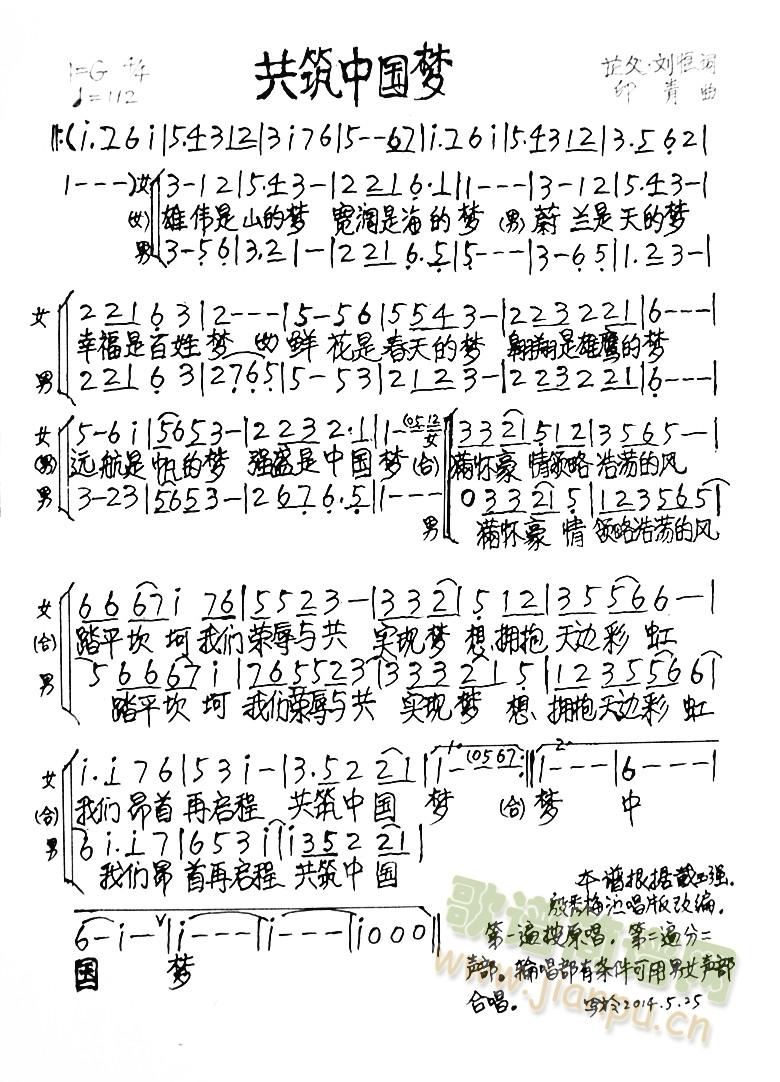 共筑中国梦
1=G 4/4
♩=112
芷父·刘恒词
印青 曲
‖:(i.7 6 i|5.4 3 1 2|3 i 7 6|5--6 7|i.7 6 i|5.4 3 1 2|3.5 6 2|
1---)女 3-1 2|5.4 3-|2 2 1 6.1|1---|3-1 2|5.4 3-|
(女)雄伟是山的梦 宽阔是海的梦 (男)蔚兰是天的梦
男 3-5 6|3.2 1-|2 2 1 6.5|5---|3-6 5|1.2 3-|
女 2 2 1 6 3|2---|5-5 6|5 5 4 3-|2 2 3 2 2 1|6---|
幸福是百姓梦 (女)鲜花是春天的梦 翱翔是雄鹰的梦
男 2 2 1 6 3|2 7 6 5|5-5 3|2 1 2 3-|2 2 3 2 2 1|6---|
女 5-6 i|5 6 5 3-|2 2 3 2.1|1-(0 5 1 2 女 3 3 2 1 5 1 2|3 5 6 5--|
(男)远航是帆的梦 强盛是中国梦 (合)满怀豪情领略浩荡的风
男 3-2 3|5 6 5 3-|2 6 7 6.5|1---| 男 0 3 3 2 1 5|1 2 3 5 6 5|
满怀豪情 领略浩荡的风
女 6 6 6 7 i 7 6|5 5 2 3-|3 3 2 1 5 1 2|3 5 5 6 6--|
(合)踏平坎坷我们荣辱与共 实现梦想、拥抱天边彩虹
男 5 6 6 6 7 i|7 6 5 5 2 3|3 3 3 2 1 5|1 2 3 5 5 6 6|
踏平坎坷 我们荣辱与共 实现梦想、拥抱天边彩虹
女 i.i 7 6|5 3 i-|3.5 2 2 1|1.i--(0 5 6 7:‖2.i---|6---|
(合)我们昂首再启程 共筑中国 梦 (合)梦 中
男 6 i.i 7|6 5 3 i|i 3 5 2 2 1|
我们昂首再启程 共筑中国
6-i-∨|i---|i---|i 0 0 0‖
国 梦
本谱根据戴玉强.
殷秀梅泟唱版改编。
第一遍按原唱。第二遍分二
声部。轮唱部有条件可用男女声部
合唱。 写於2014.5.25
歌谱简谱网
www.jianpu.cn